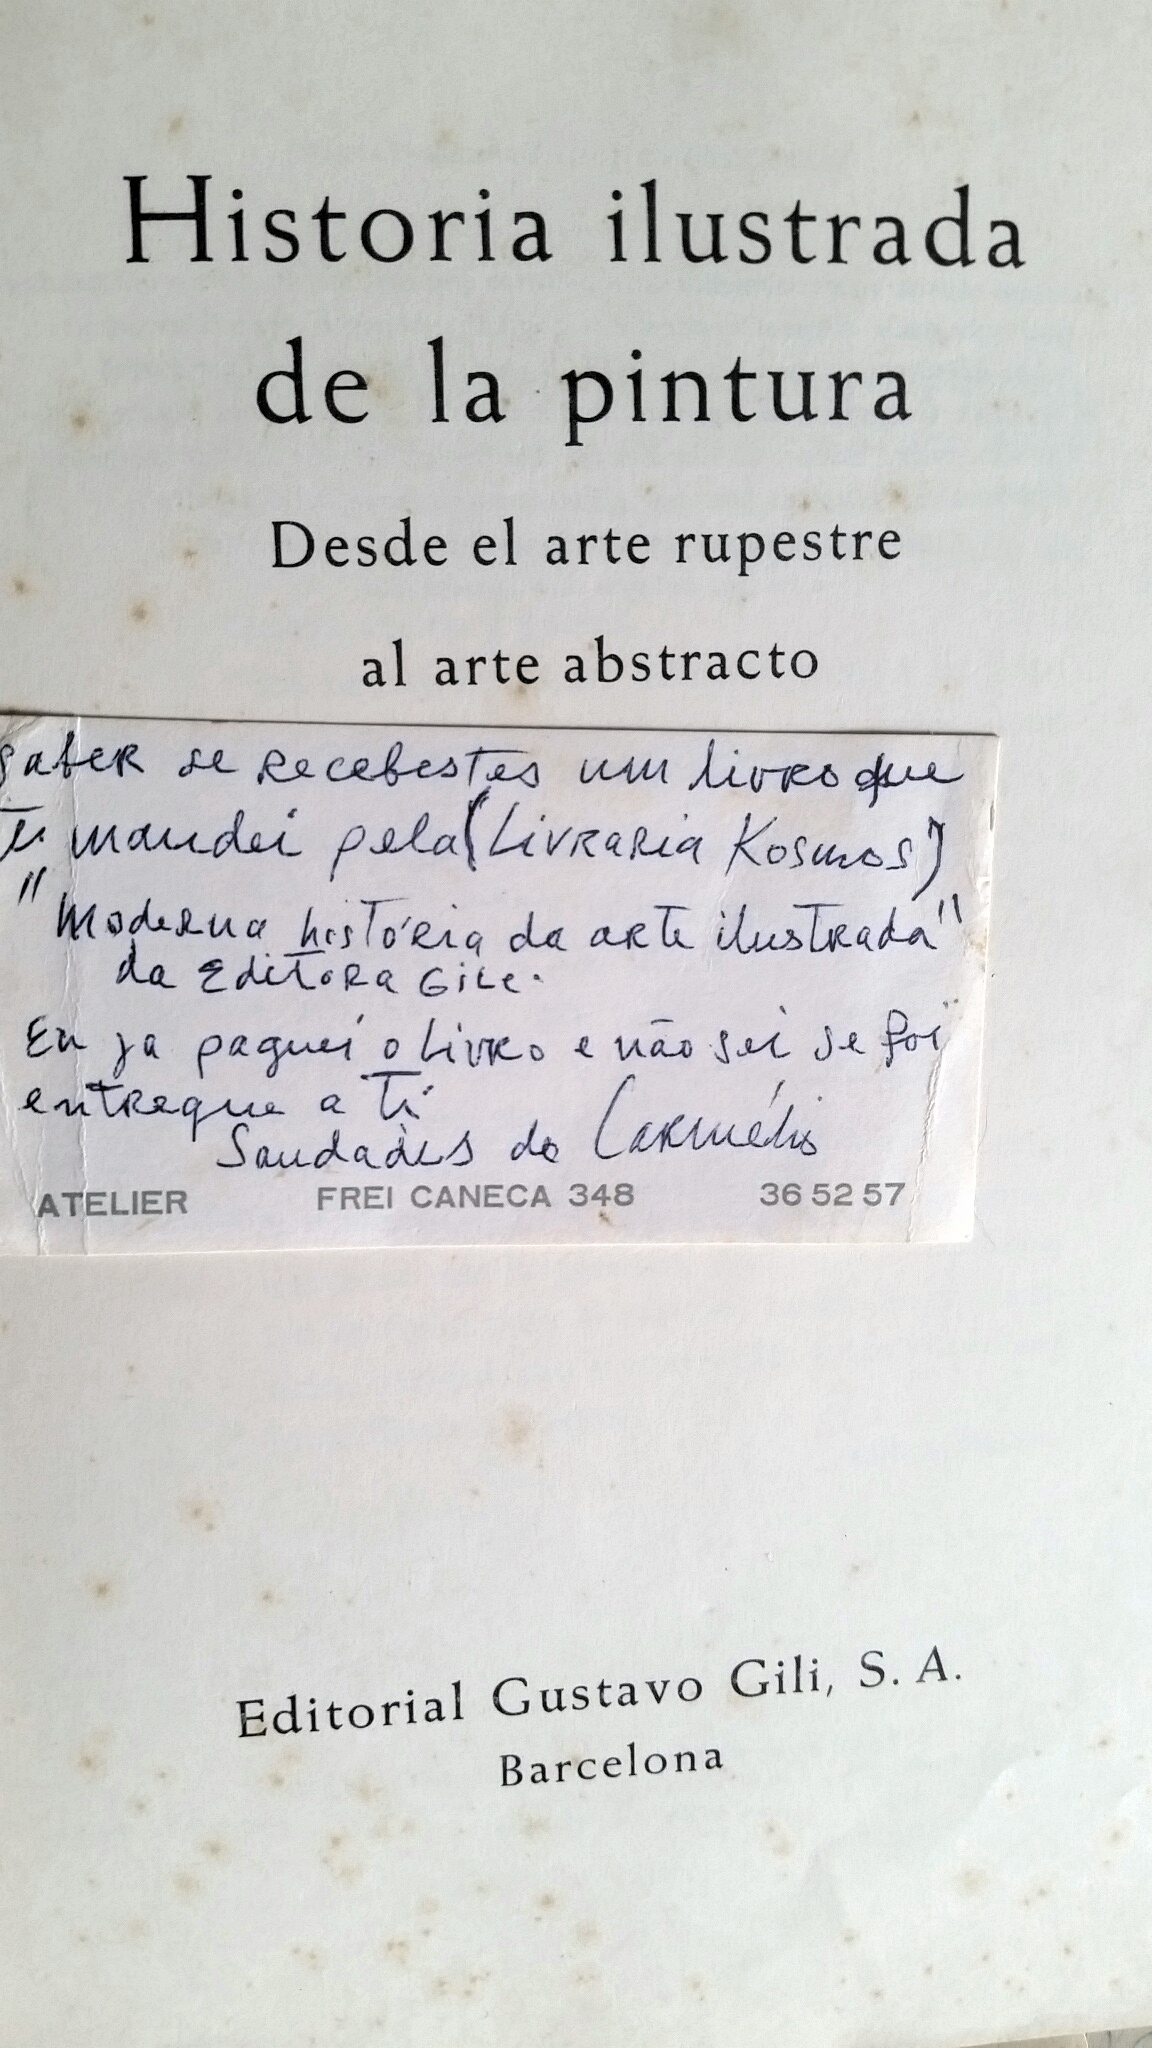 Historia ilustrada
de la pintura
Desde el arte rupestre
al arte abstracto
saber se recebestes um livro que
te mandei pela (Livraria Kosmos)
"Moderna história da arte ilustrada"
da Editora Gile.
Eu ja paguei o livro e não sei se foi
entregue a ti
Saudades do Carmélio
ATELIER FREI CANECA 348 36 52 57
Editorial Gustavo Gili, S. A.
Barcelona